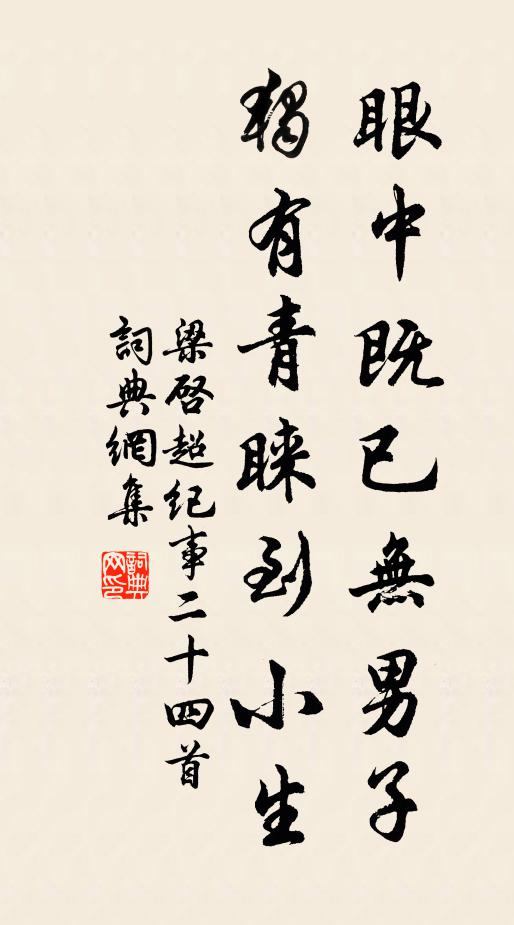 眼中既已無男子
獨有青睞到小生
梁啓超纪事二十四首
詞典網集
詞典網印